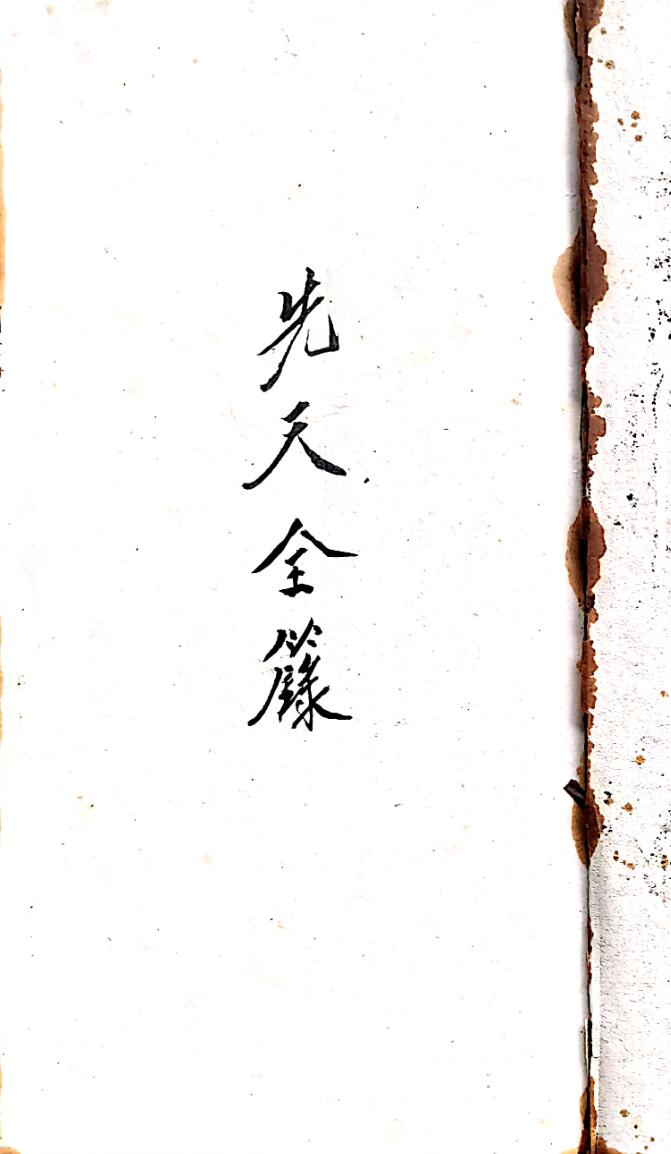 先天全籙